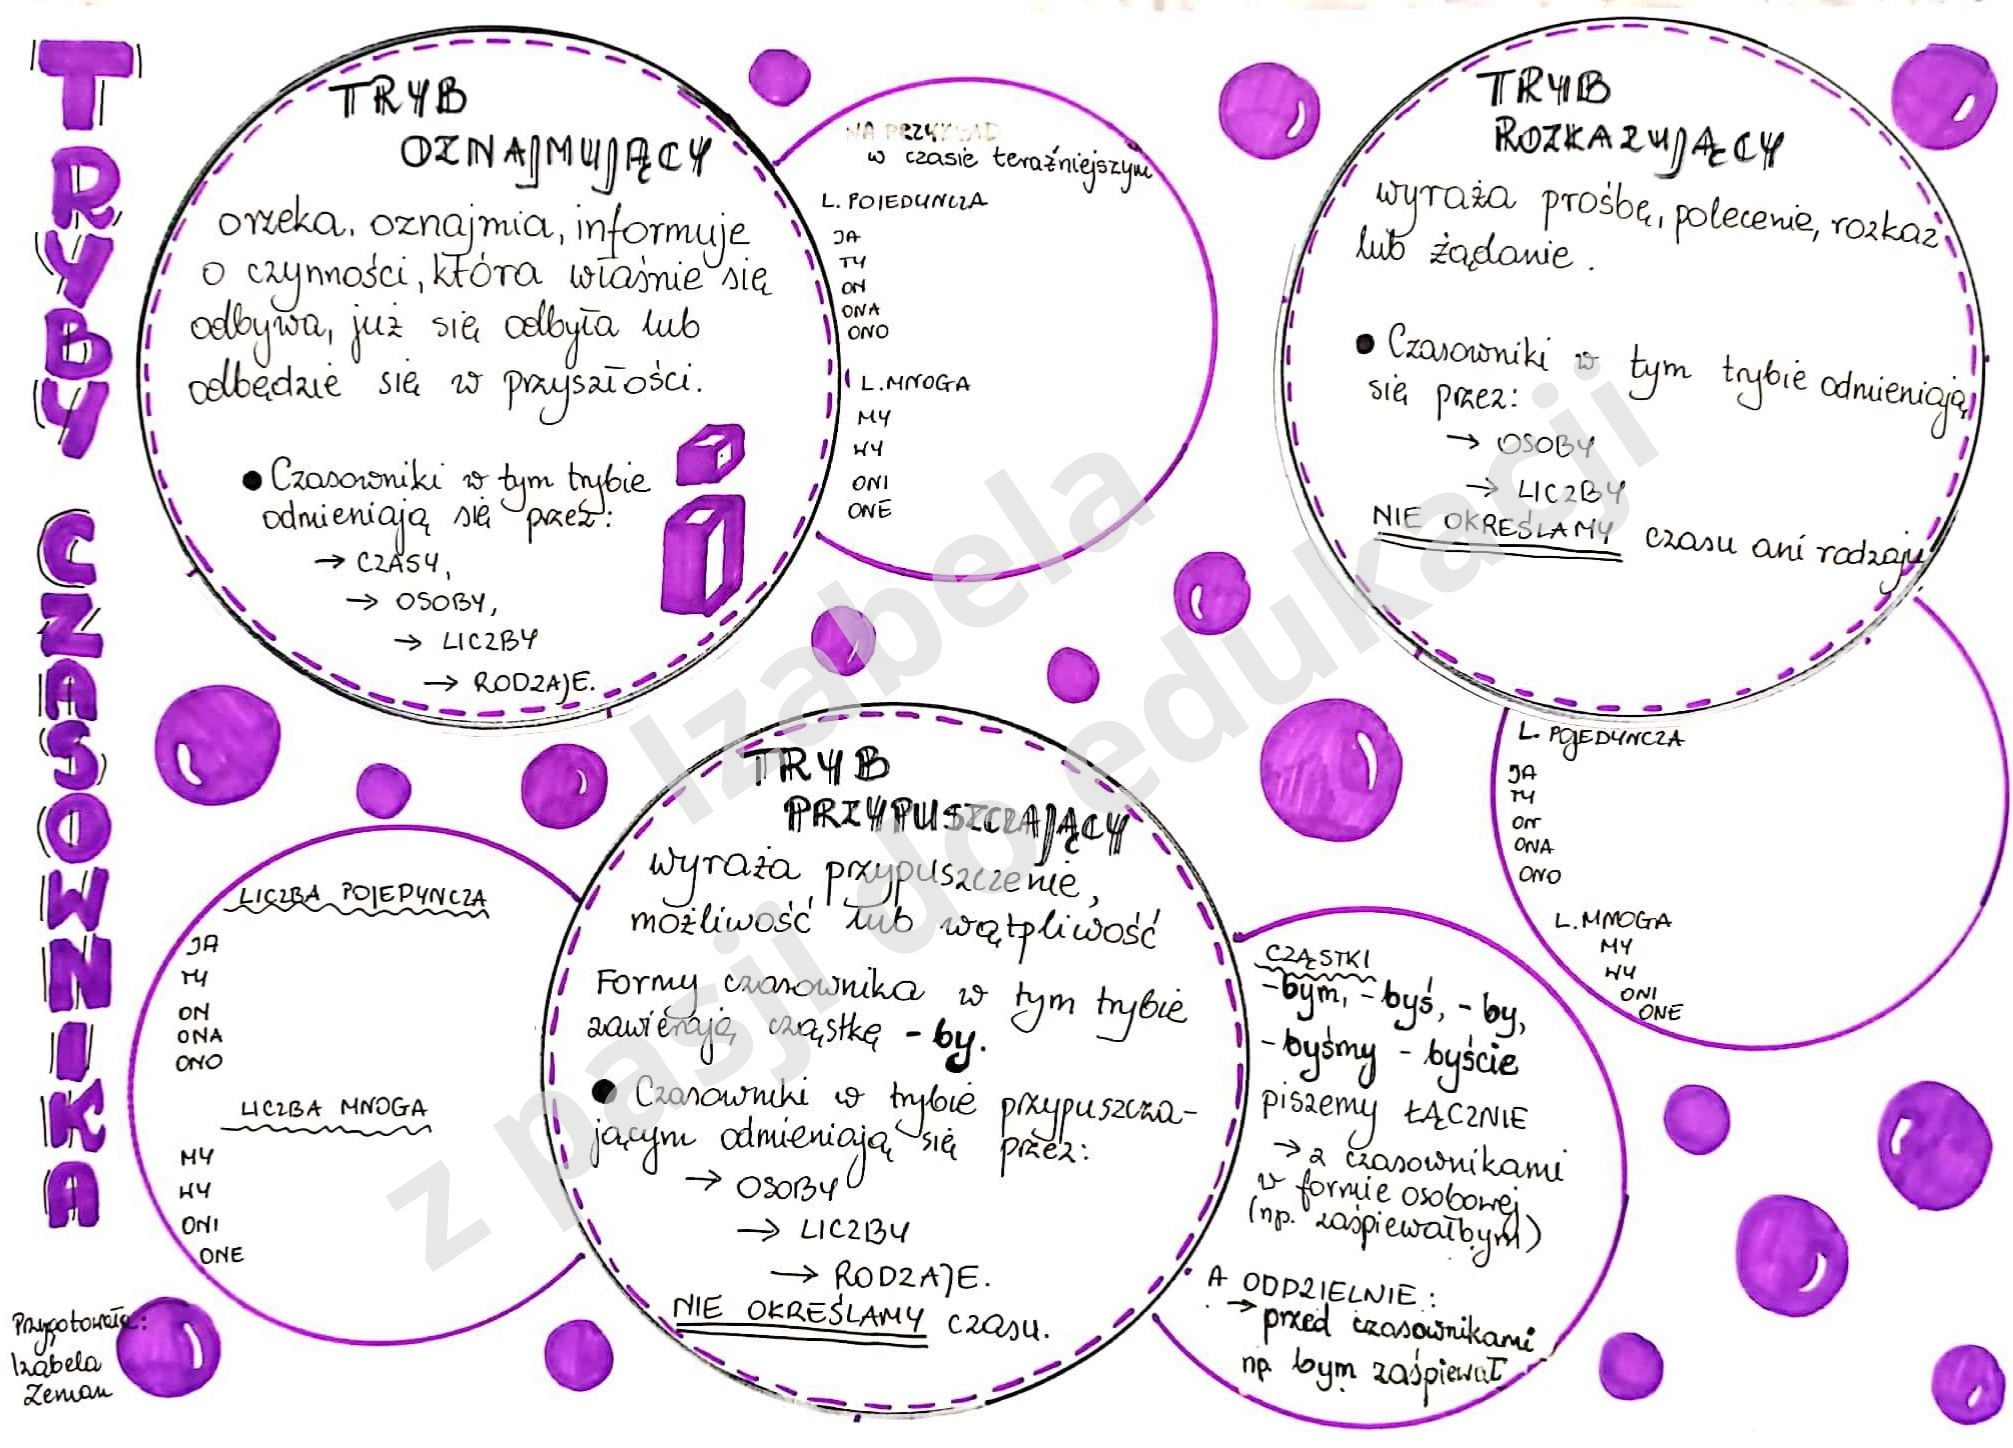 TRYBY CZASOWNIKA
TRYB
OZNAJMUJĄCY
orzeka, oznajmia, informuje
o czynności, która właśnie się
odbywa, już się odbyła lub
odbędzie się w przyszłości.
• Czasowniki w tym trybie
odmieniają się przez:
→ CZASY,
→ OSOBY,
→ LICZBY
→ RODZAJE.
NA PRZYKŁAD
w czasie teraźniejszym
L. POJEDYNCZA
JA
TY
ON
ONA
ONO
L. MNOGA
MY
WY
ONI
ONE
TRYB
ROZKAZUJĄCY
wyraża prośbę, polecenie, rozkaz
lub żądanie.
• Czasowniki w tym trybie odmieniają
się przez:
→ OSOBY
→ LICZBY
NIE OKREŚLAMY czasu ani rodzaju
L. POJEDYNCZA
JA
TY
ON
ONA
ONO
L. MNOGA
MY
WY
ONI
ONE
TRYB
PRZYPUSZCZAJĄCY
wyraża przypuszczenie,
możliwość lub wątpliwość
Formy czasownika w tym trybie
zawierają cząstkę -by.
• Czasowniki w trybie przypuszcza-
jącym odmieniają się przez:
→ OSOBY
→ LICZBY
→ RODZAJE.
NIE OKREŚLAMY czasu.
LICZBA POJEDYNCZA
JA
TY
ON
ONA
ONO
LICZBA MNOGA
MY
WY
ONI
ONE
CZĄSTKI
-bym, -byś, -by,
-byśmy -byście
piszemy ŁĄCZNIE
→ z czasownikami
w formie osobowej
(np. zaśpiewałbym)
A ODDZIELNIE:
→ przed czasownikami
np bym zaśpiewał
Przygotowała:
Izabela
Zeman
Izabela
z pasji do edukacji